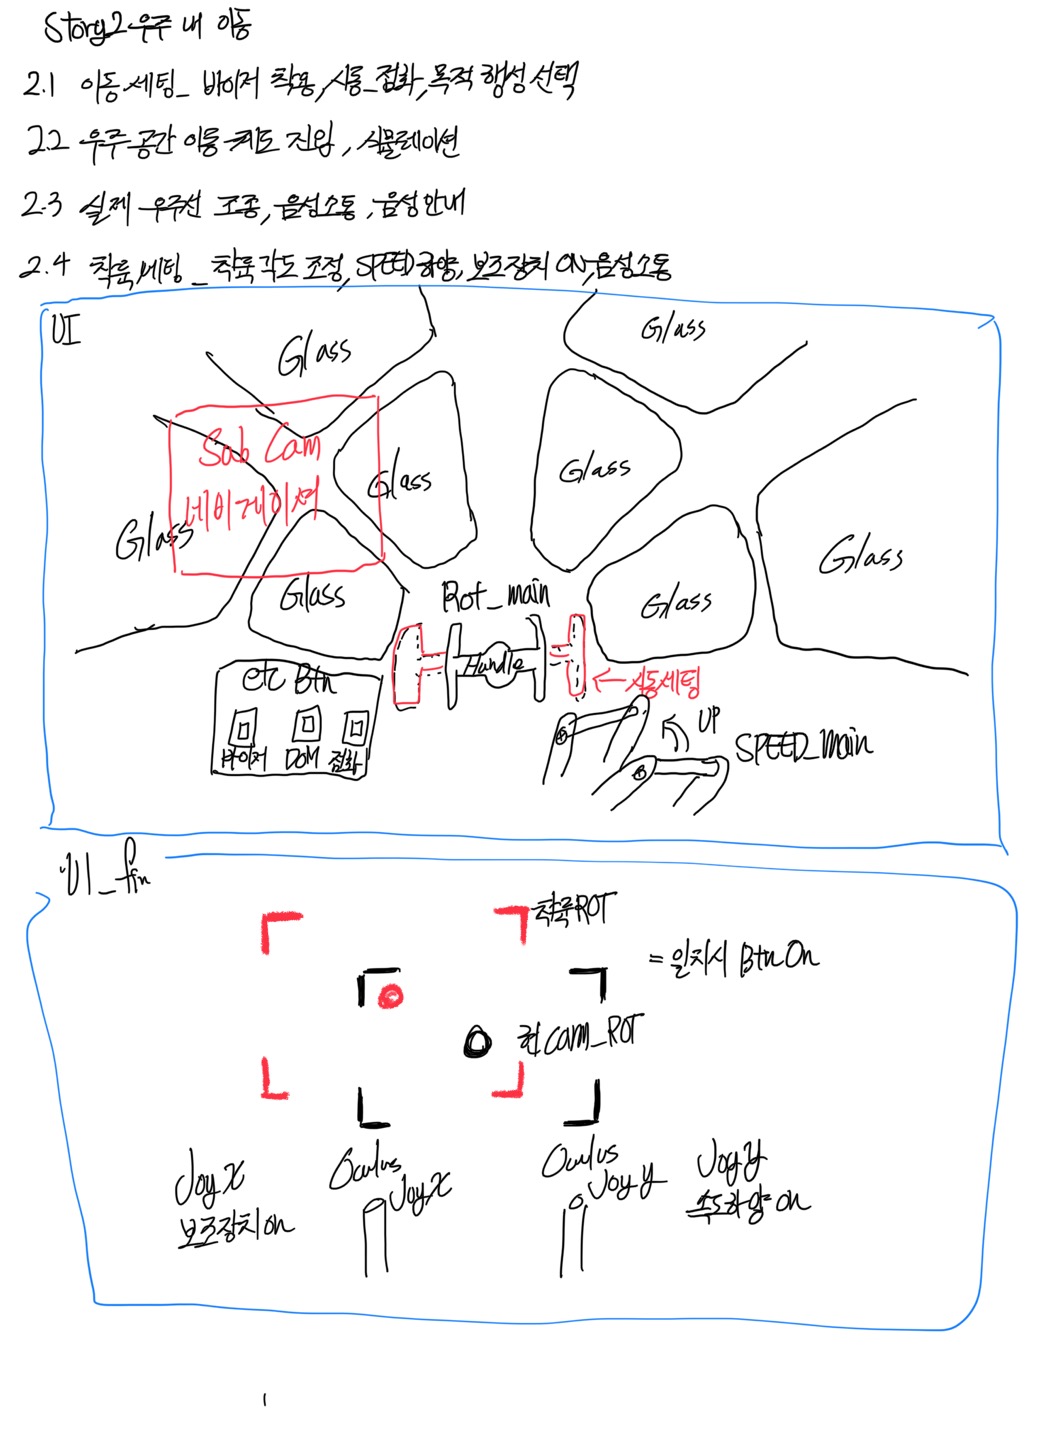 Story2 우주 내 이동
2.1 이동세팅_ 바이저 착용, 시동_점화, 목적 행성 선택
2.2 우주공간 이동 궤도 진입, 시뮬레이션
2.3 실제 우주선 조종, 음성소통, 음성안내
2.4 착륙세팅_ 착륙각도 조정, SPEED 하양, 보조장치 ON, 음성소통
UI
Glass
Glass
Sab Cam
네비게이셔
Glass
Glass
Glass
Glass
Glass
Glass
Rot_main
Handle
←시동세팅
etc Btn
바이저 DOM 점화
UP
SPEED_main
UI_fin
착륙ROT
= 일치시 Btn On
현 cam_ROT
Joy X
보조장치 on
Oculus
Joy X
Oculus
Joy Y
Joy Y
속도하양 on